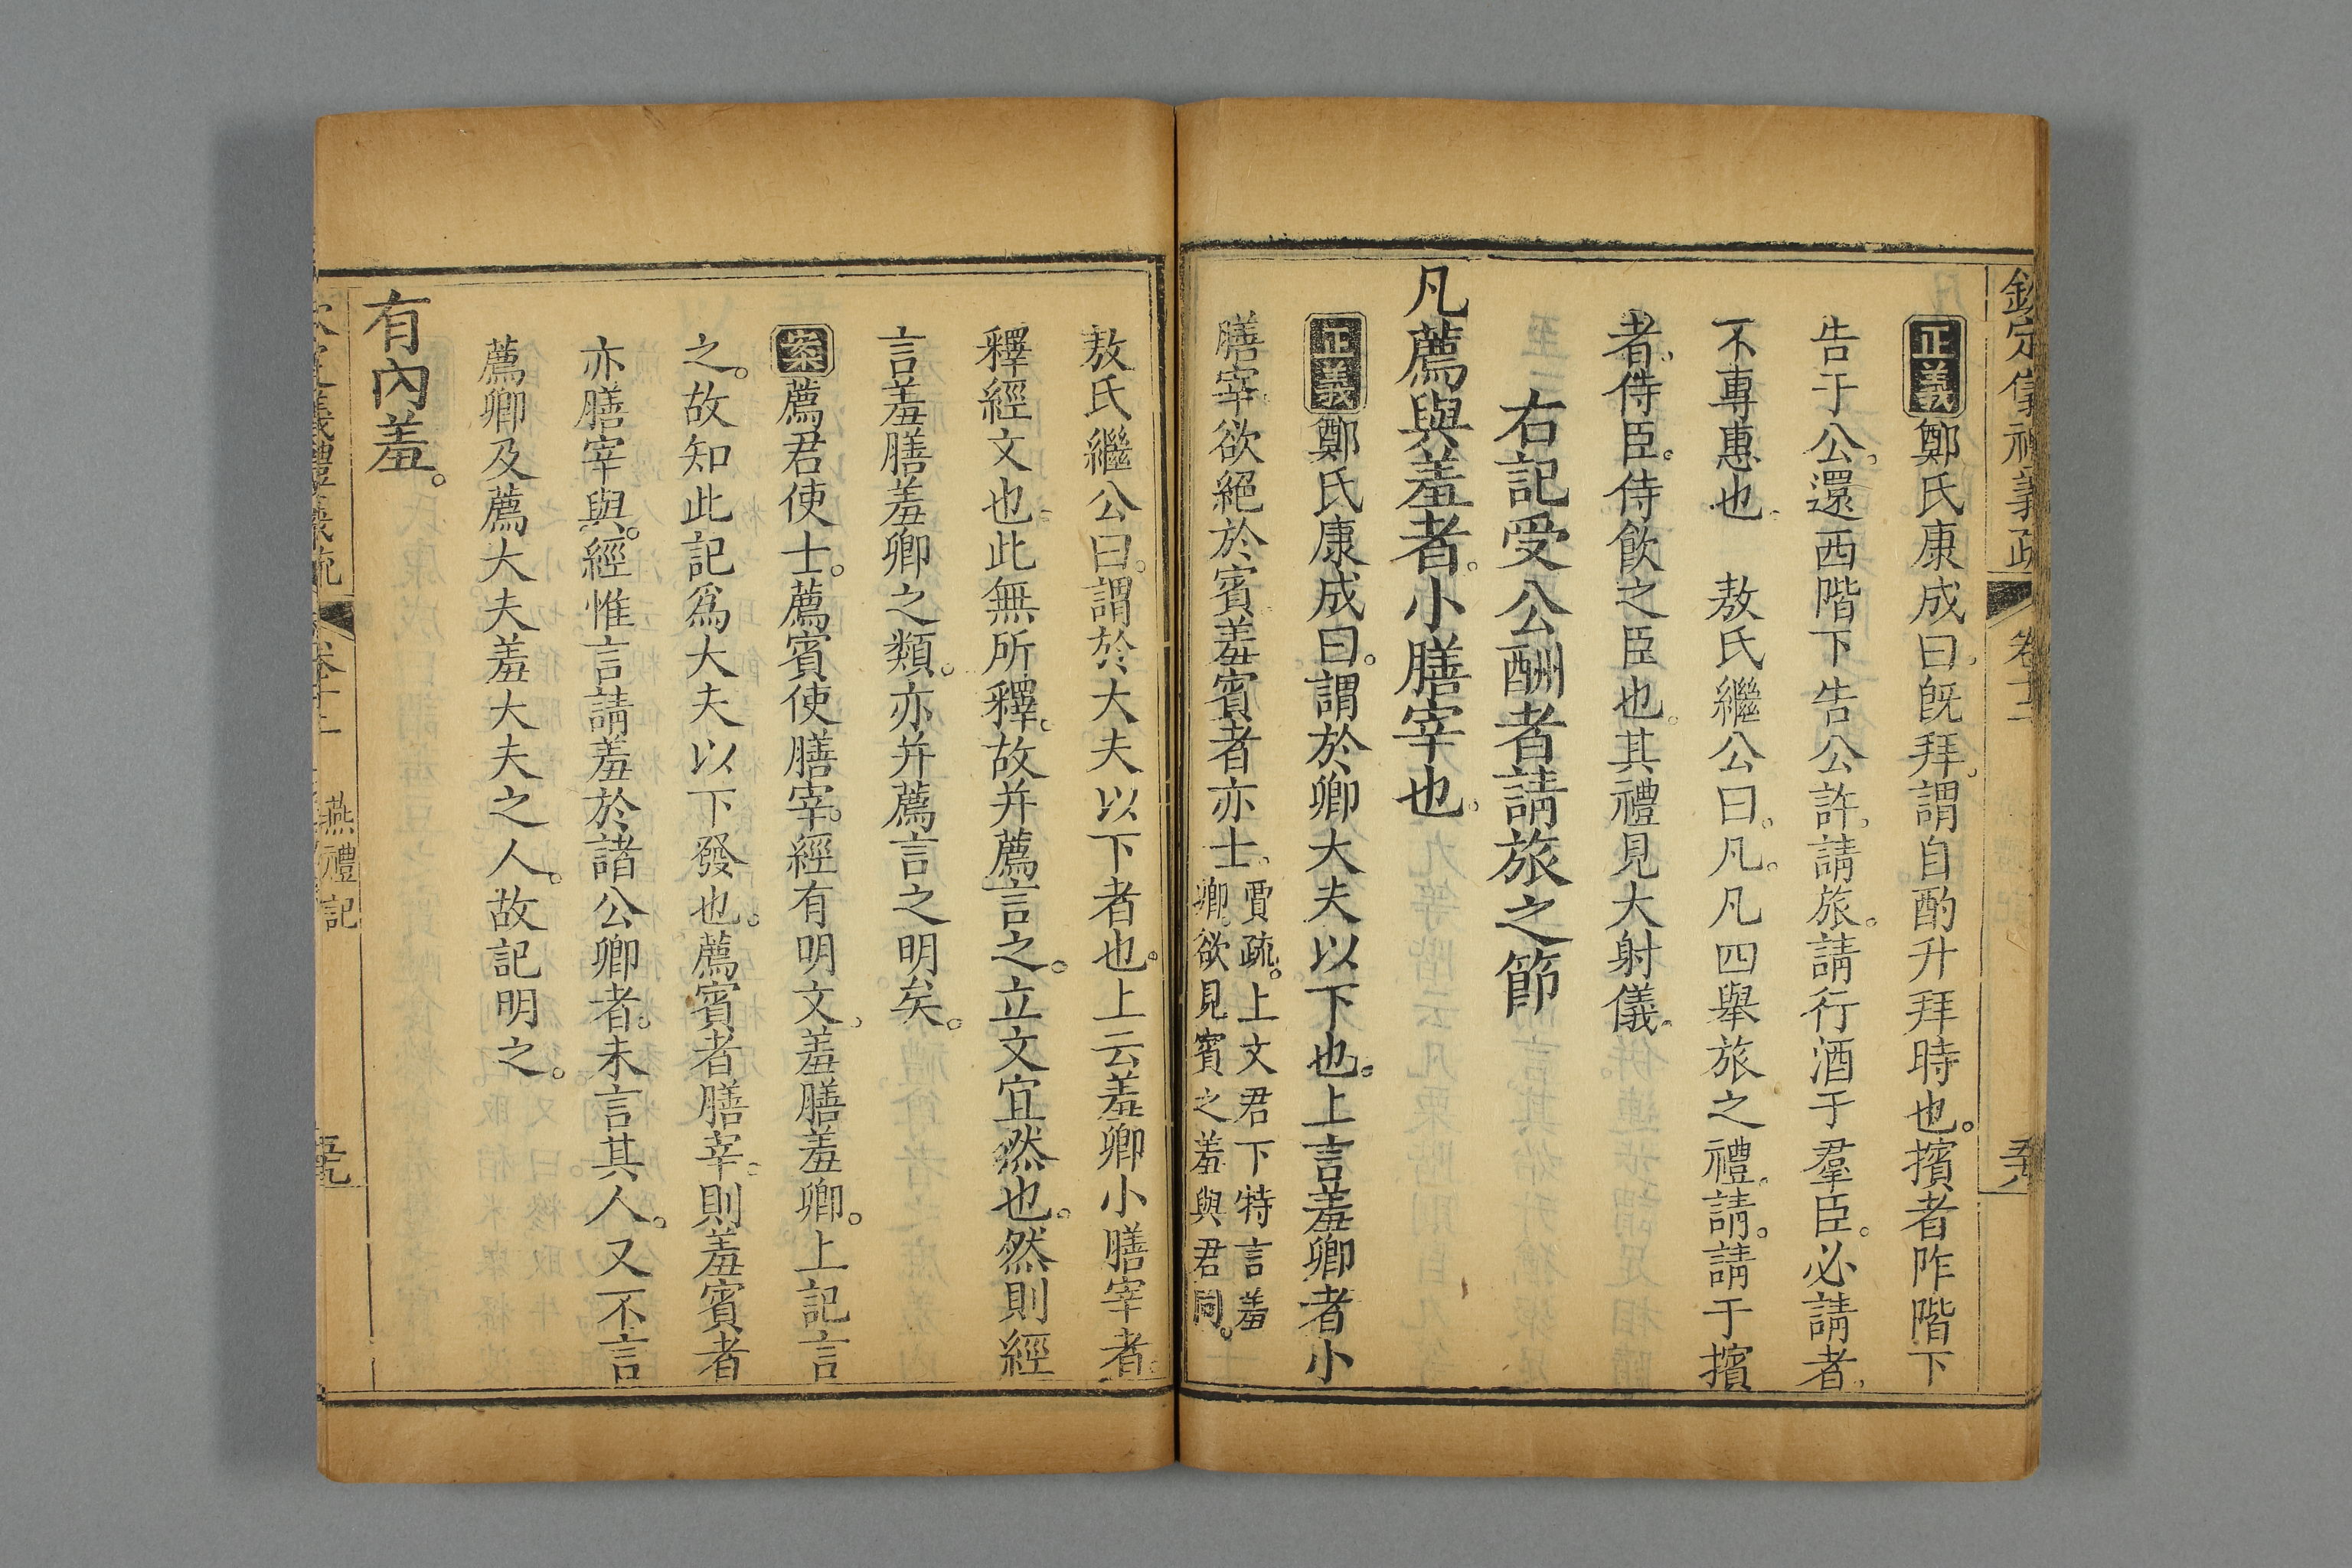 欽定儀禮義疏 卷十二 
正義鄭氏康成曰旣拜謂自酌升拜時也。擯者阼階下
告于公。還西階下告公許。請旅。請行酒于羣臣。必請者。
不專惠也。 敖氏繼公曰。凡。凡四舉旅之禮。請。請于擯
者。侍臣。侍飲之臣也。其禮見大射儀。
右記受公酬者請旅之節
凡薦與羞者。小膳宰也。
正義鄭氏康成曰。謂於卿大夫以下也。上言羞卿者小
膳宰。欲絕於賓。羞賓者亦士。賈疏。上文君下特言羞
卿。欲見賓之羞與君同。
敖氏繼公曰。謂於大夫以下者也。上云羞卿小膳宰者。
釋經文也。此無所釋。故并薦言之。立文宜然也。然則經
言羞膳羞卿之類。亦并薦言之明矣。
案薦君使士。薦賓使膳宰。經有明文。羞膳羞卿。上記言
之。故知此記爲大夫以下發也。薦賓者膳宰。則羞賓者
亦膳宰與。經惟言請羞於諸公卿者。未言其人。又不言
薦卿及薦大夫羞大夫之人。故記明之。
有內羞。
燕禮記